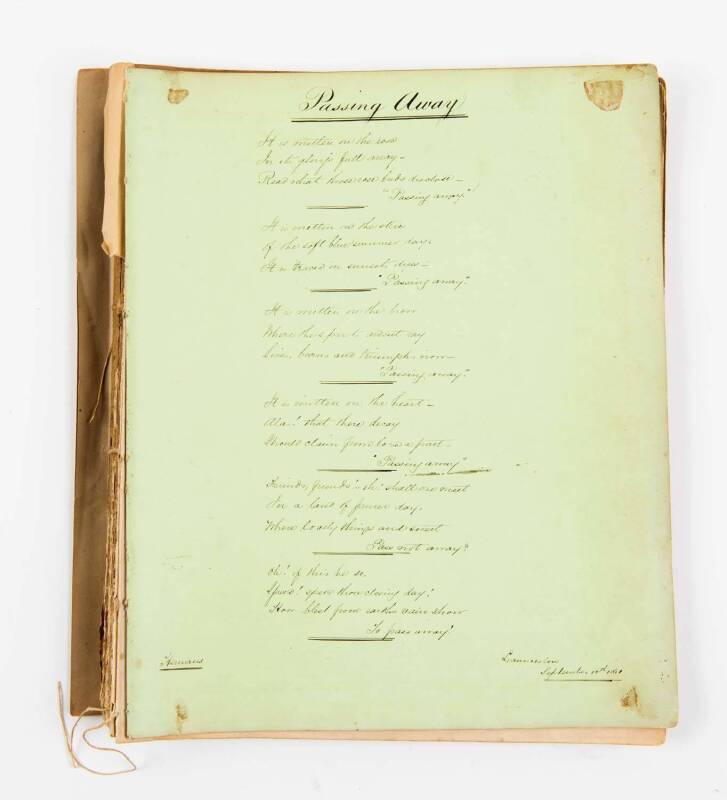 Passing Away
It is written on the rose
In its glory's full array –
Read what those rose buds disclose –
"Passing away."
It is written on the skies
Of the soft blue summer day,
It is traced in sunset's dyes –
"Passing away."
It is written on the brow
Where the spirit's ray
Lives, burns and triumphs now –
"Passing away."
It is written on the heart –
Alas! that there decay
Should claim from love a part –
"Passing away"
Friends, friends! – oh! shall we meet
In a land of purer day,
Where lovely things and sweet
Pass not away?
Oh! if this be so,
Speed! speed thou closing day!
How blest from earth's vain show
To pass away!
Hemans
Launceston
September